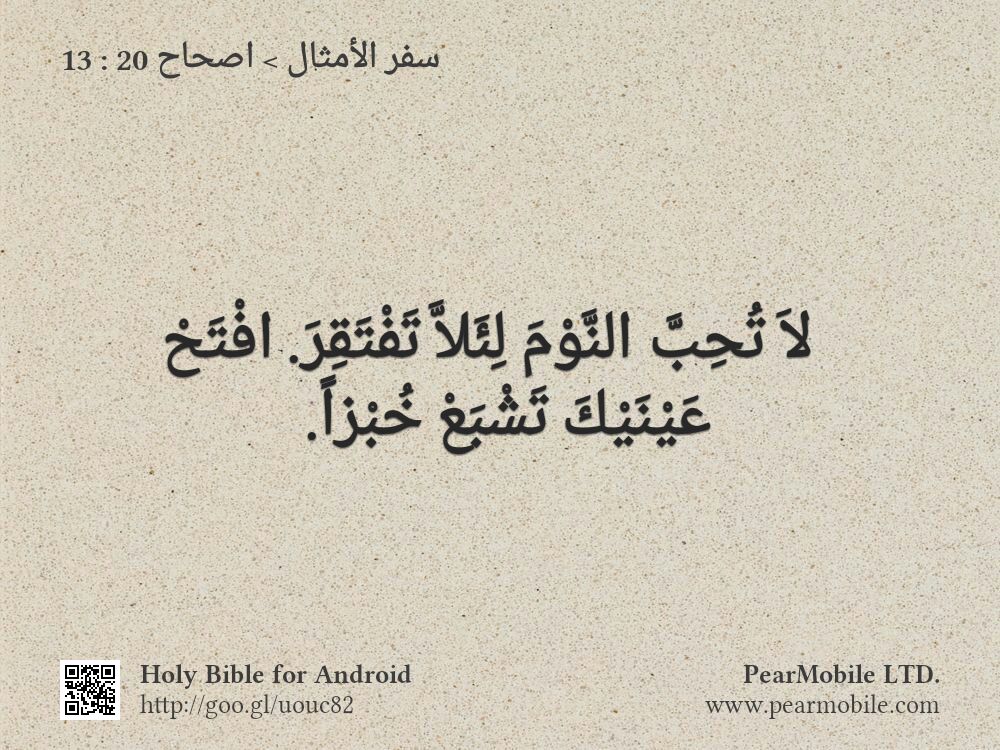 سفر الأمثال > اصحاح 20 : 13
لاَ تُحِبَّ النَّوْمَ لِئَلاَّ تَفْتَقِرَ. افْتَحْ
عَيْنَيْكَ تَشْبَعْ خُبْزاً.
Holy Bible for Android
http://goo.gl/uouc82
PearMobile LTD.
www.pearmobile.com